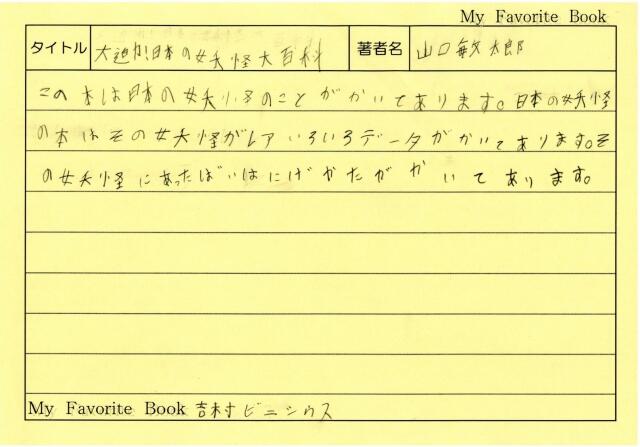 My Favorite Book
タイトル 大迫力!日本の妖怪大百科 著者名 山口敏太郎
この本は日本の妖怪のことがかいてあります。日本の妖怪
の本はその妖怪がレアいろいろデータがかいてあります。そ
の妖怪にあったばいはにげかたがかいてあります。
My Favorite Book 吉村ビニシウス